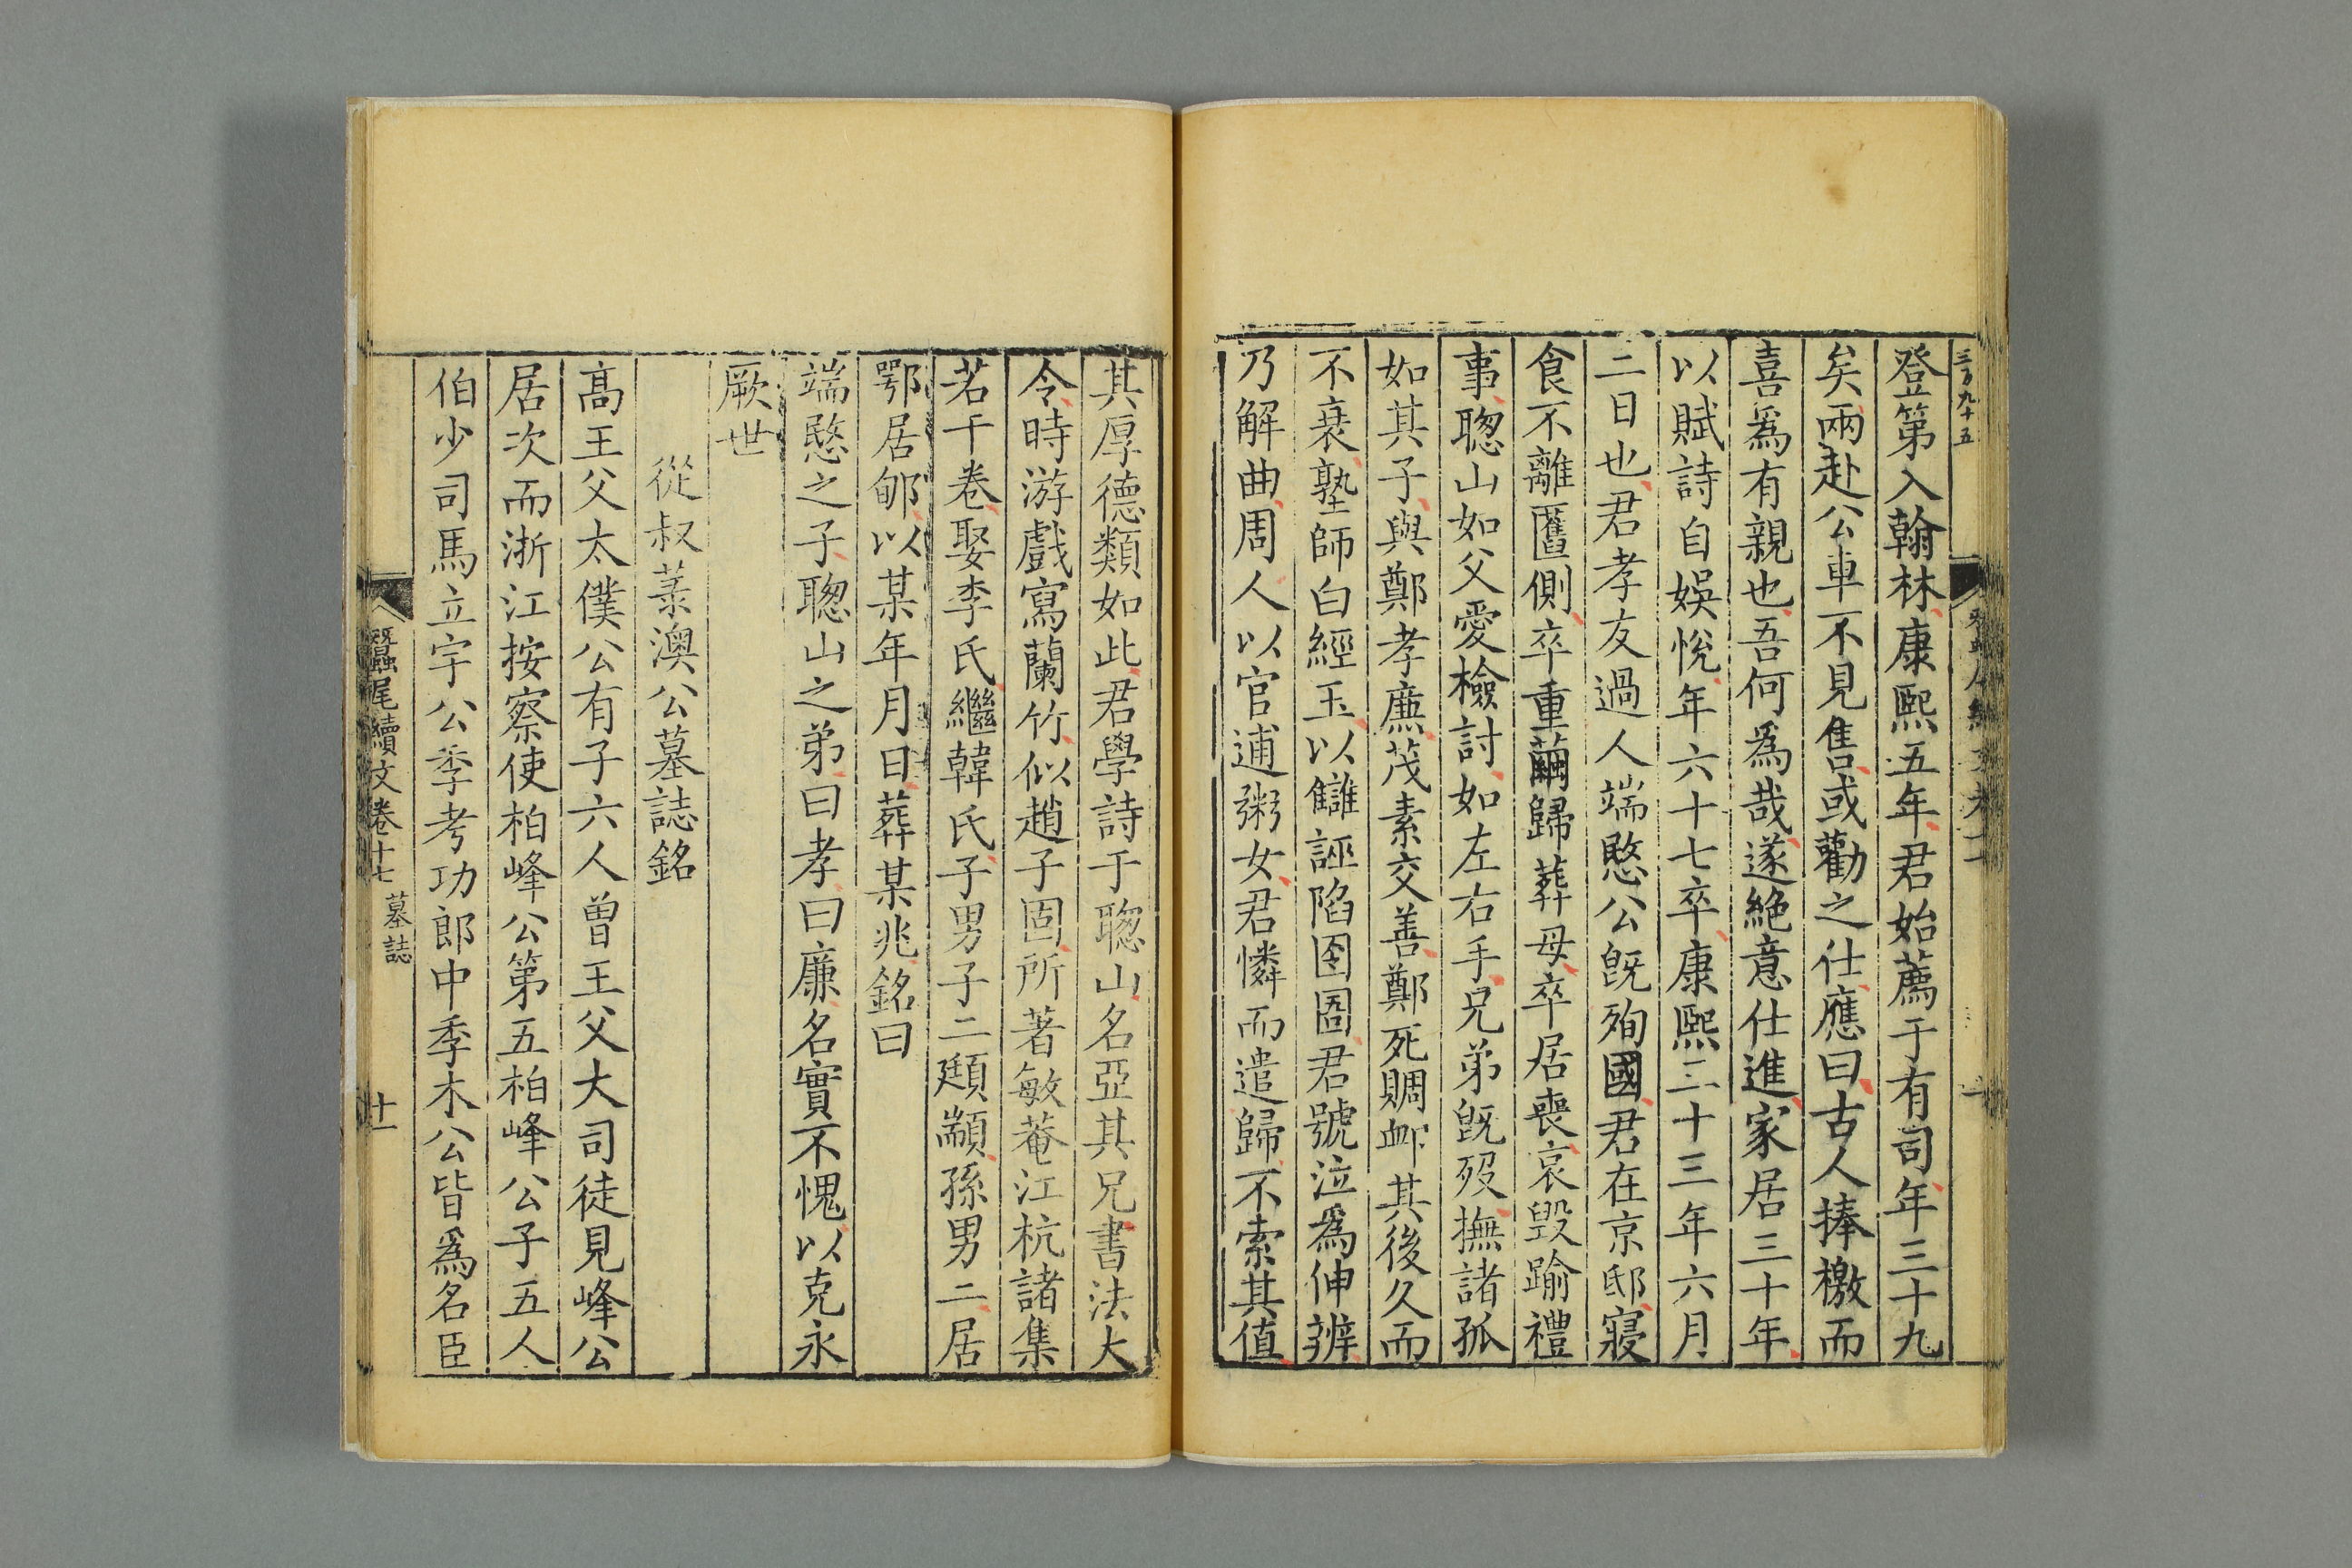 三百九十五
登第入翰林康熙五年君始薦于有司年三十九
矣兩赴公車不見售或勸之仕應曰古人捧檄而
喜爲有親也吾何爲哉遂絶意仕進家居三十年
以賦詩自娛悅年六十七卒康熙二十三年六月
二日也君孝友過人端愍公旣殉國君在京邸寢
食不離匶側卒重繭歸葬母卒居喪哀毀踰禮
事聰山如父愛檢討如左右手兄弟旣歿撫諸孤
如其子與鄭孝廉茂素交善鄭死賙卹其後久而
不衰塾師白經玉以讎誣陷囹圄君號泣爲伸辨
乃解曲周人以官逋粥女君憐而遣歸不索其值
其厚德類如此君學詩于聰山名亞其兄書法大
令時游戲寫蘭竹似趙子固所著敏菴江杭諸集
若干卷娶李氏繼韓氏子男子二頲顓孫男二居
鄂居郇以某年月日葬某兆銘曰
端愍之子聰山之弟曰孝曰廉名實不愧以克永
厥世
從叔菉澳公墓誌銘
高王父太僕公有子六人曾王父大司徒見峰公
居次而浙江按察使柏峰公第五柏峰公子五人
伯少司馬立宇公季考功郎中季木公皆爲名臣
蠶尾續文卷十七 墓誌 十一